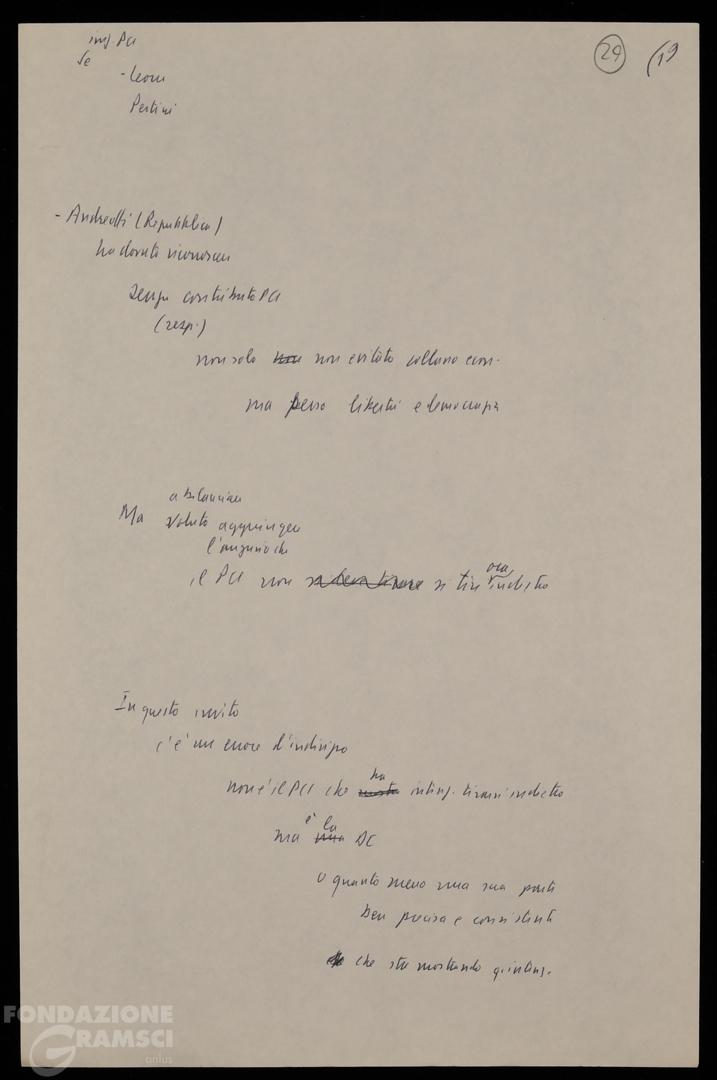 24 19
imp. PCI
Se
- Leone
Pertini
- Andreotti (Repubblica)
ha dovuto riconoscere
senza contributo PCI
(resp.)
non solo non evitato collasso econ.
ma perso libertà e democrazia
a bilanciare
Ma voluto aggiungere
l'augurio che
ora
il PCI non si tiri indietro
In questo invito
c'è un errore d'indirizzo
ha
non è il PCI che intenz. tirarsi indietro
è la
ma DC
o quanto meno una sua parte
ben precisa e consistente
che sta mostrando q. intenz.
FONDAZIONE
GRAMSCI
onlus